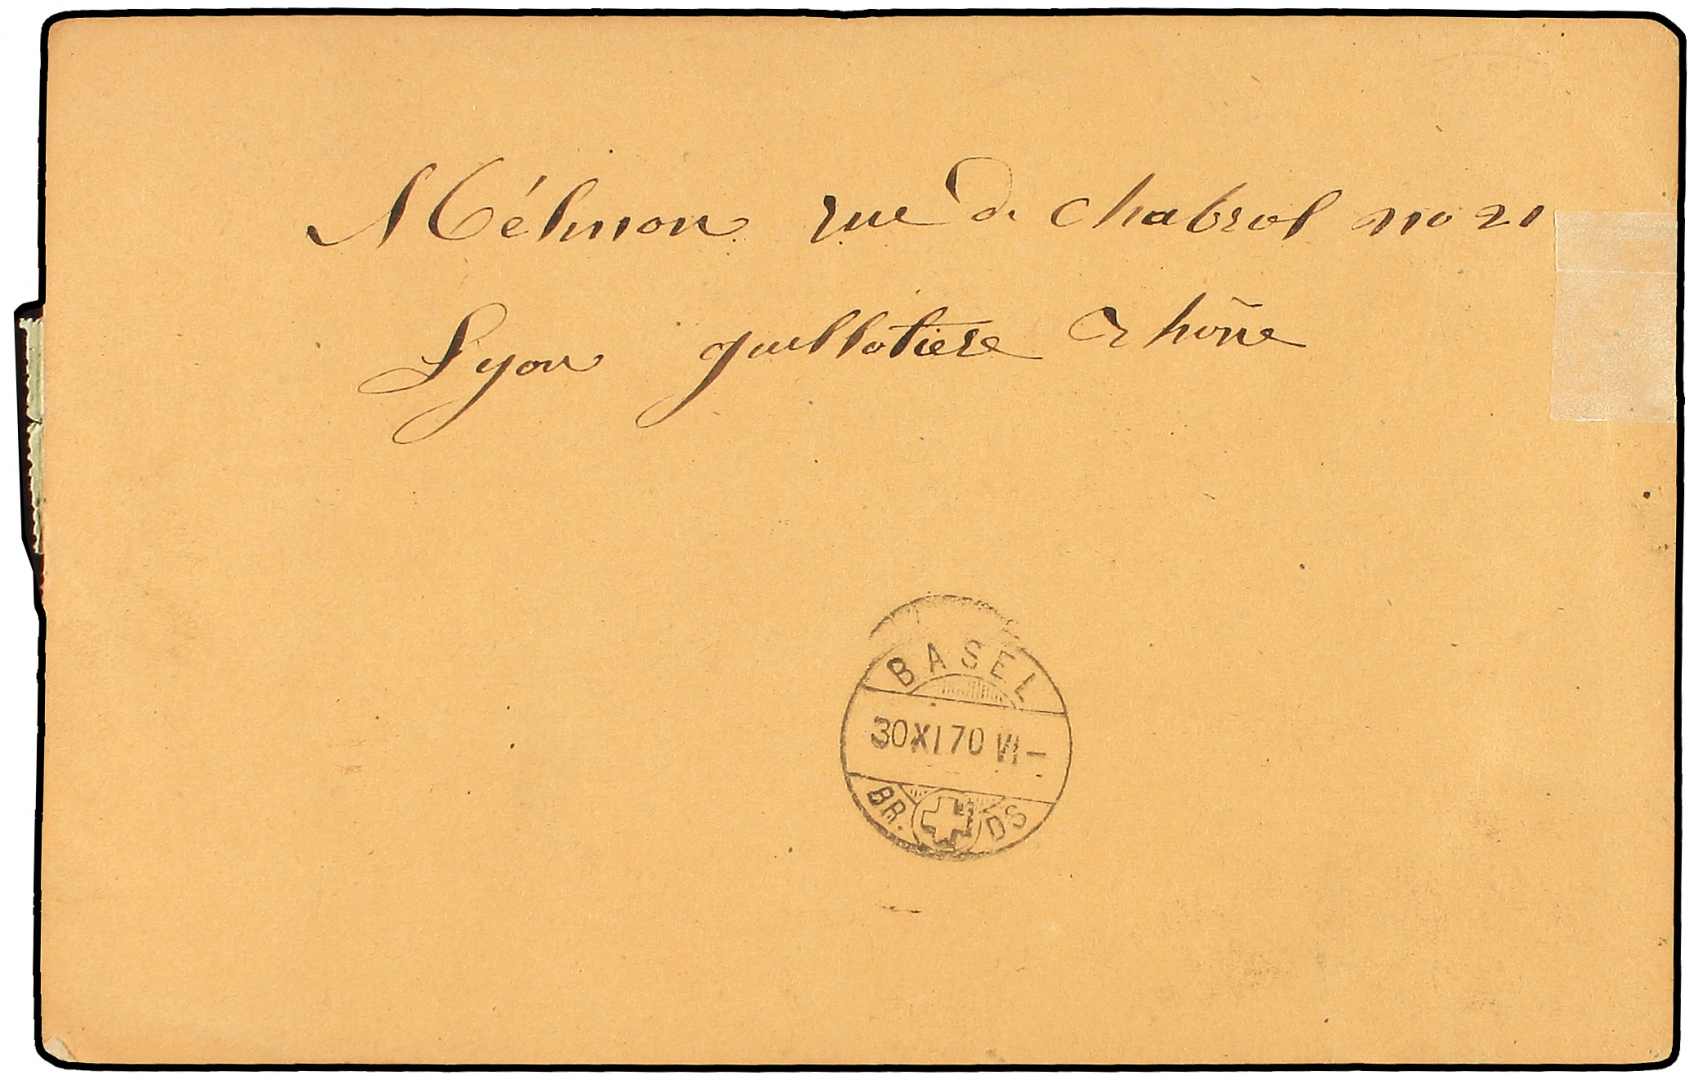 Mélinon rue de chabrol no 21
Lyon guillotiere Rhône
BASEL
30 XI 70 VI –
BR. DS